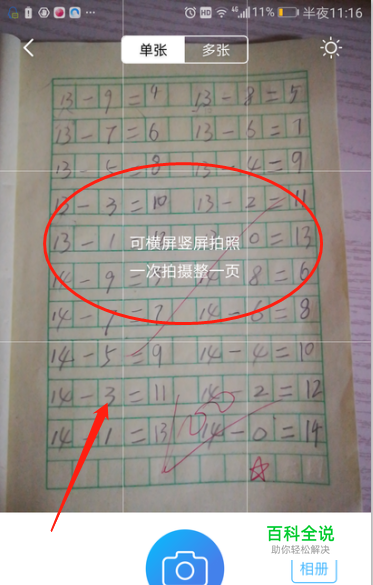 11% 半夜11:16
单张 多张
13-9=4 13-8=5
13-7=6 13-6=7
13-5=8 13-4=9
13-3=10 13-2=11
13-1=12 0=13
可横屏竖屏拍照
一次拍摄整一页
14-9=5 8=6
14-7=7 14-6=8
14-5=9 14-4=10
14-3=11 14-2=12
14-1=13 14-0=14
百科全说
助你轻松解决
相册